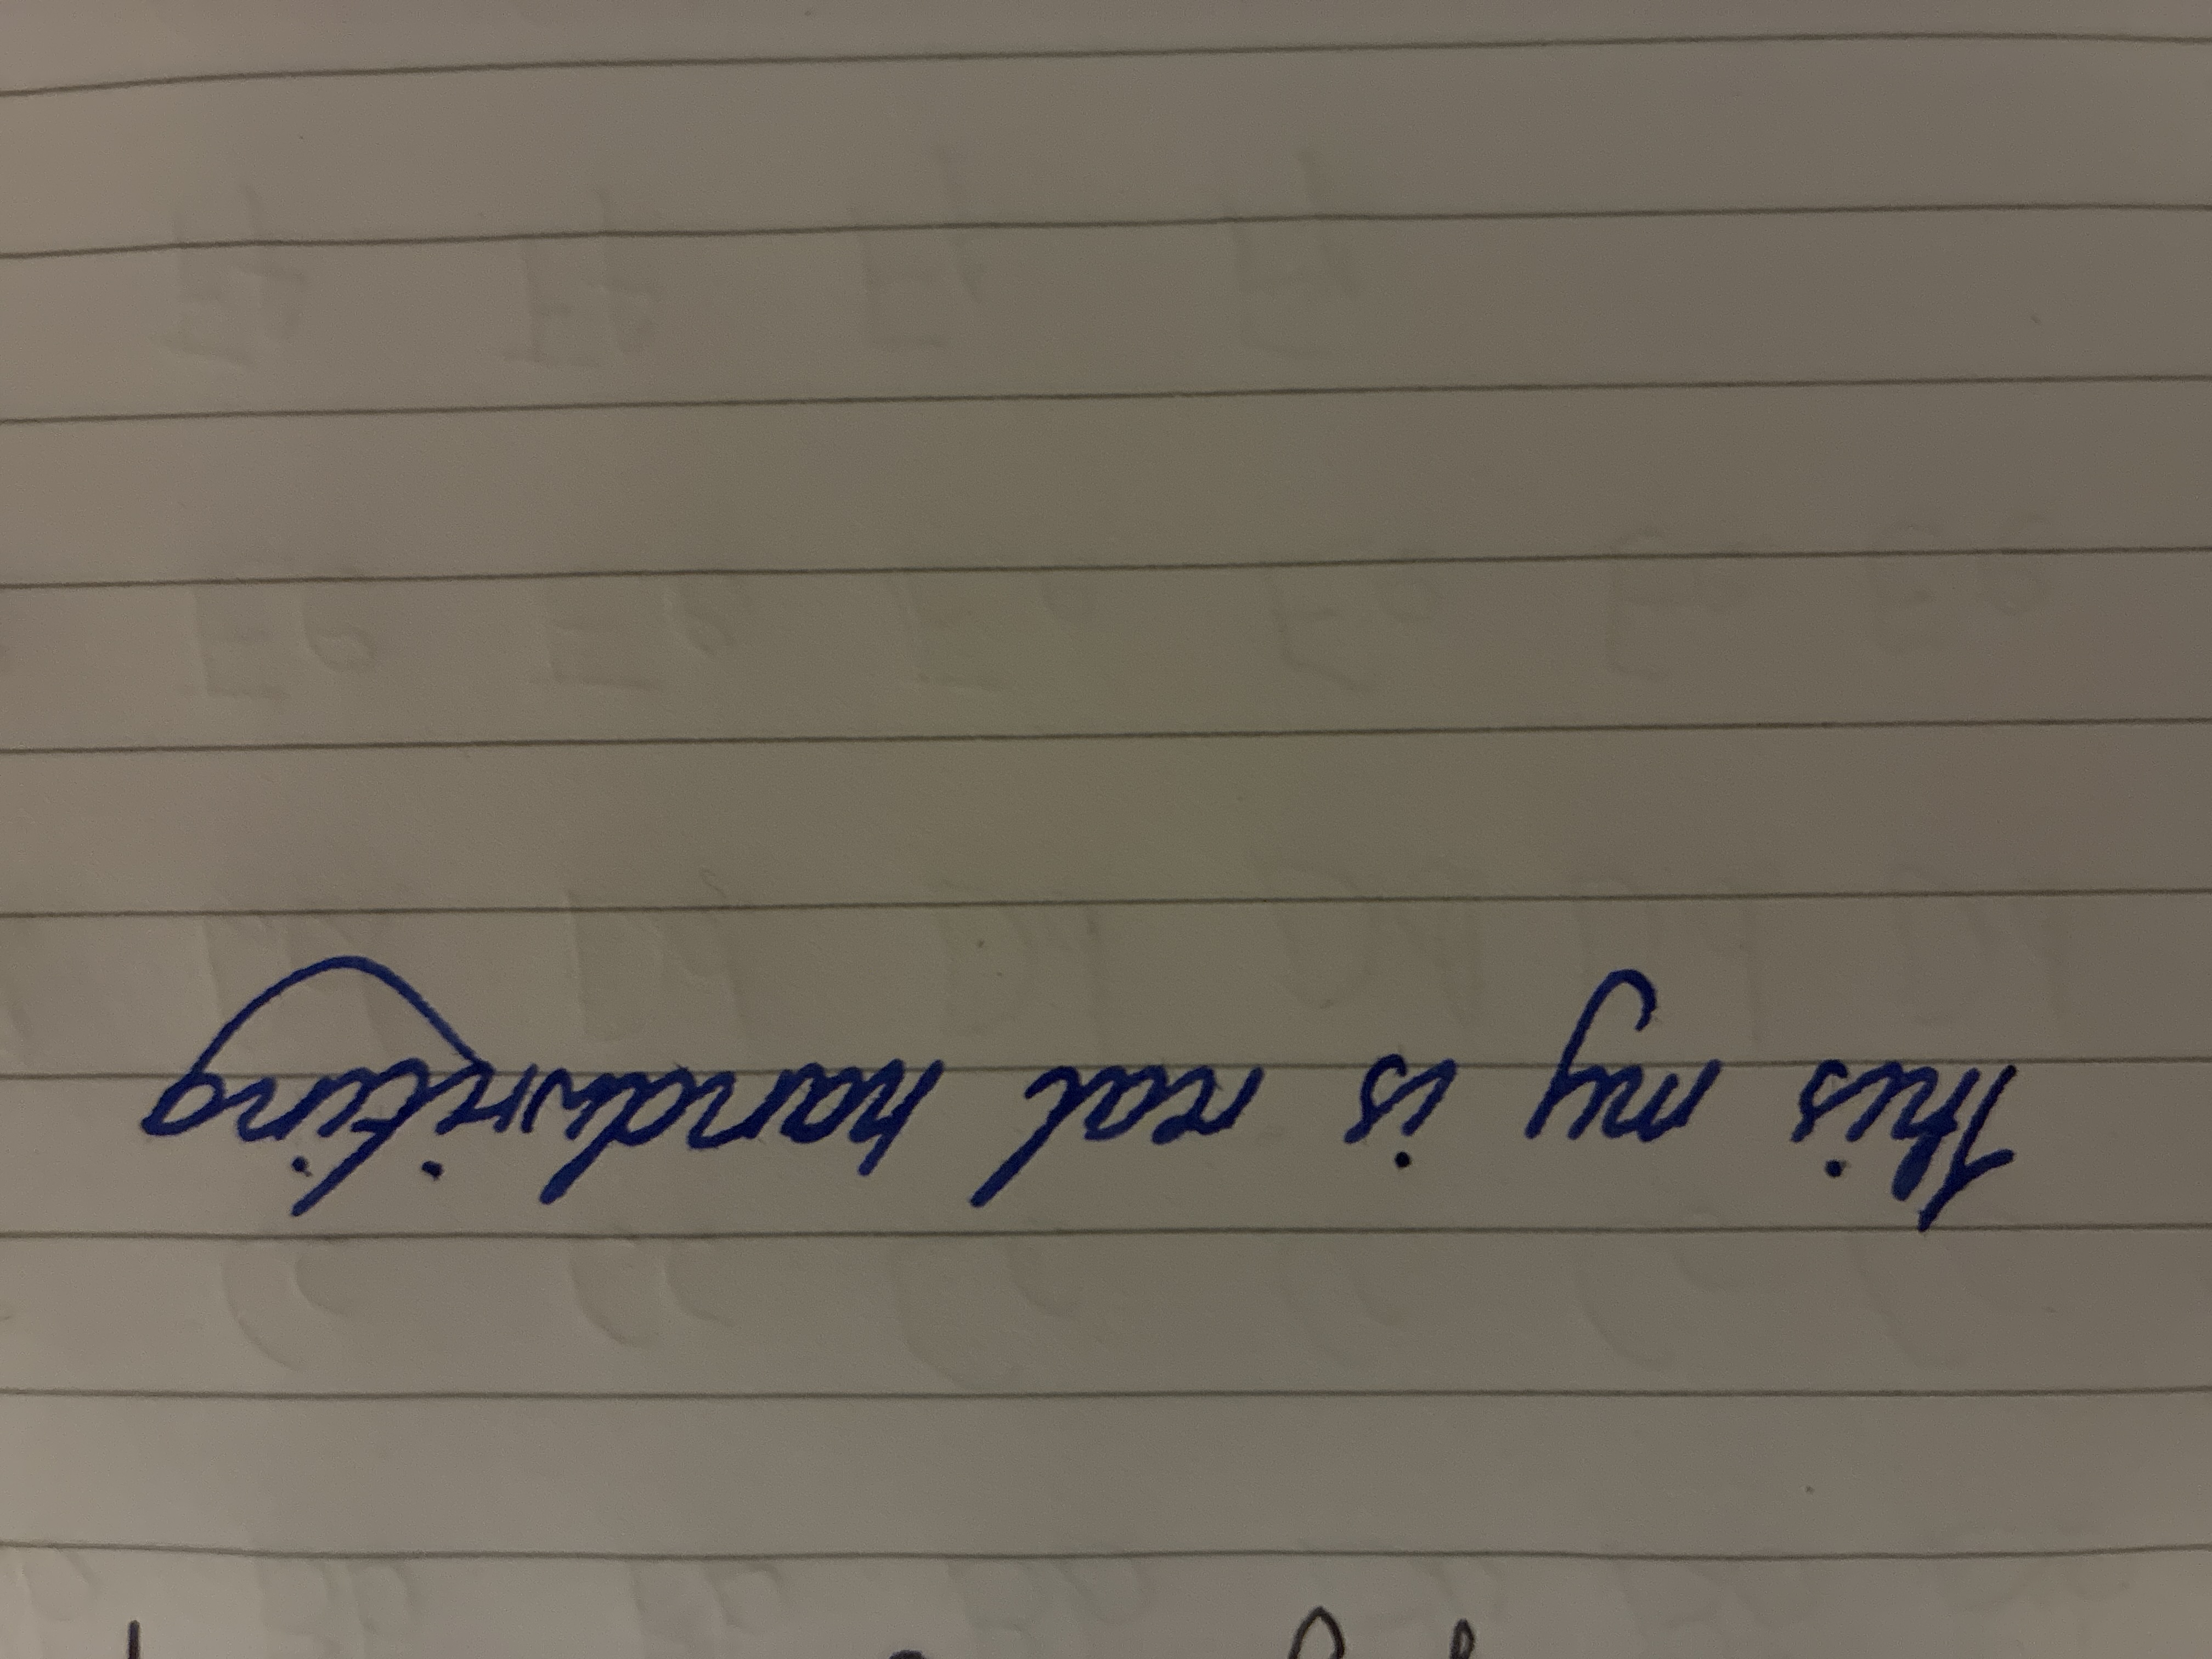 This is my is real handwriting